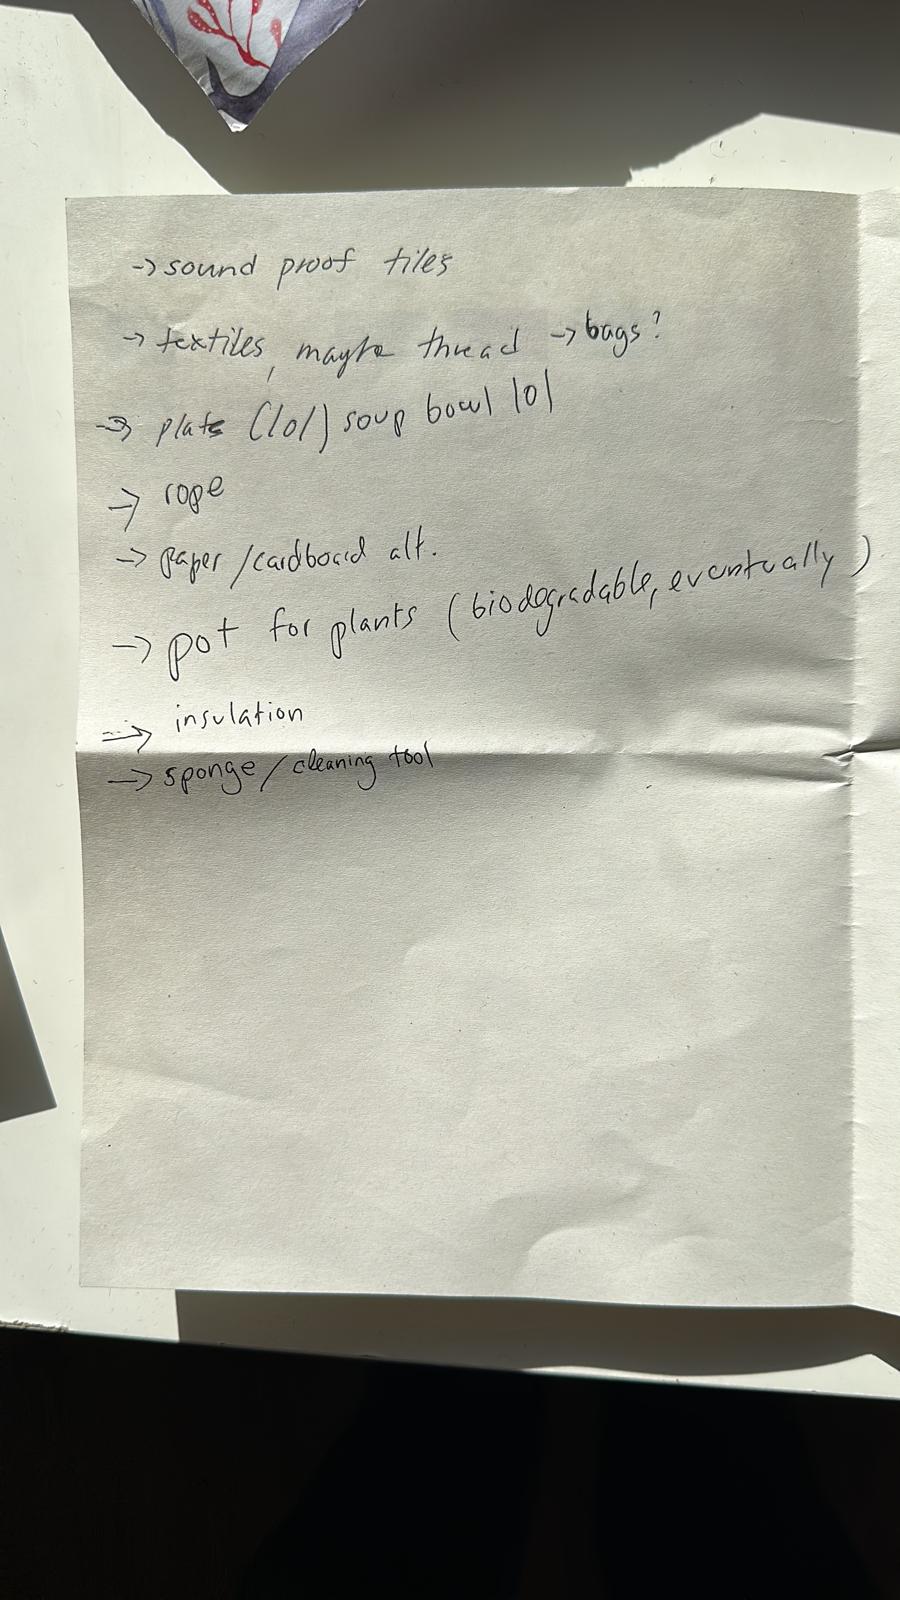 -> sound proof tiles
-> textiles, maybe thread -> bags?
-> plate (lol) soup bowl lol
-> rope
-> paper/cardboard alt.
-> pot for plants (biodegradable, eventually)
-> insulation
-> sponge/cleaning tool